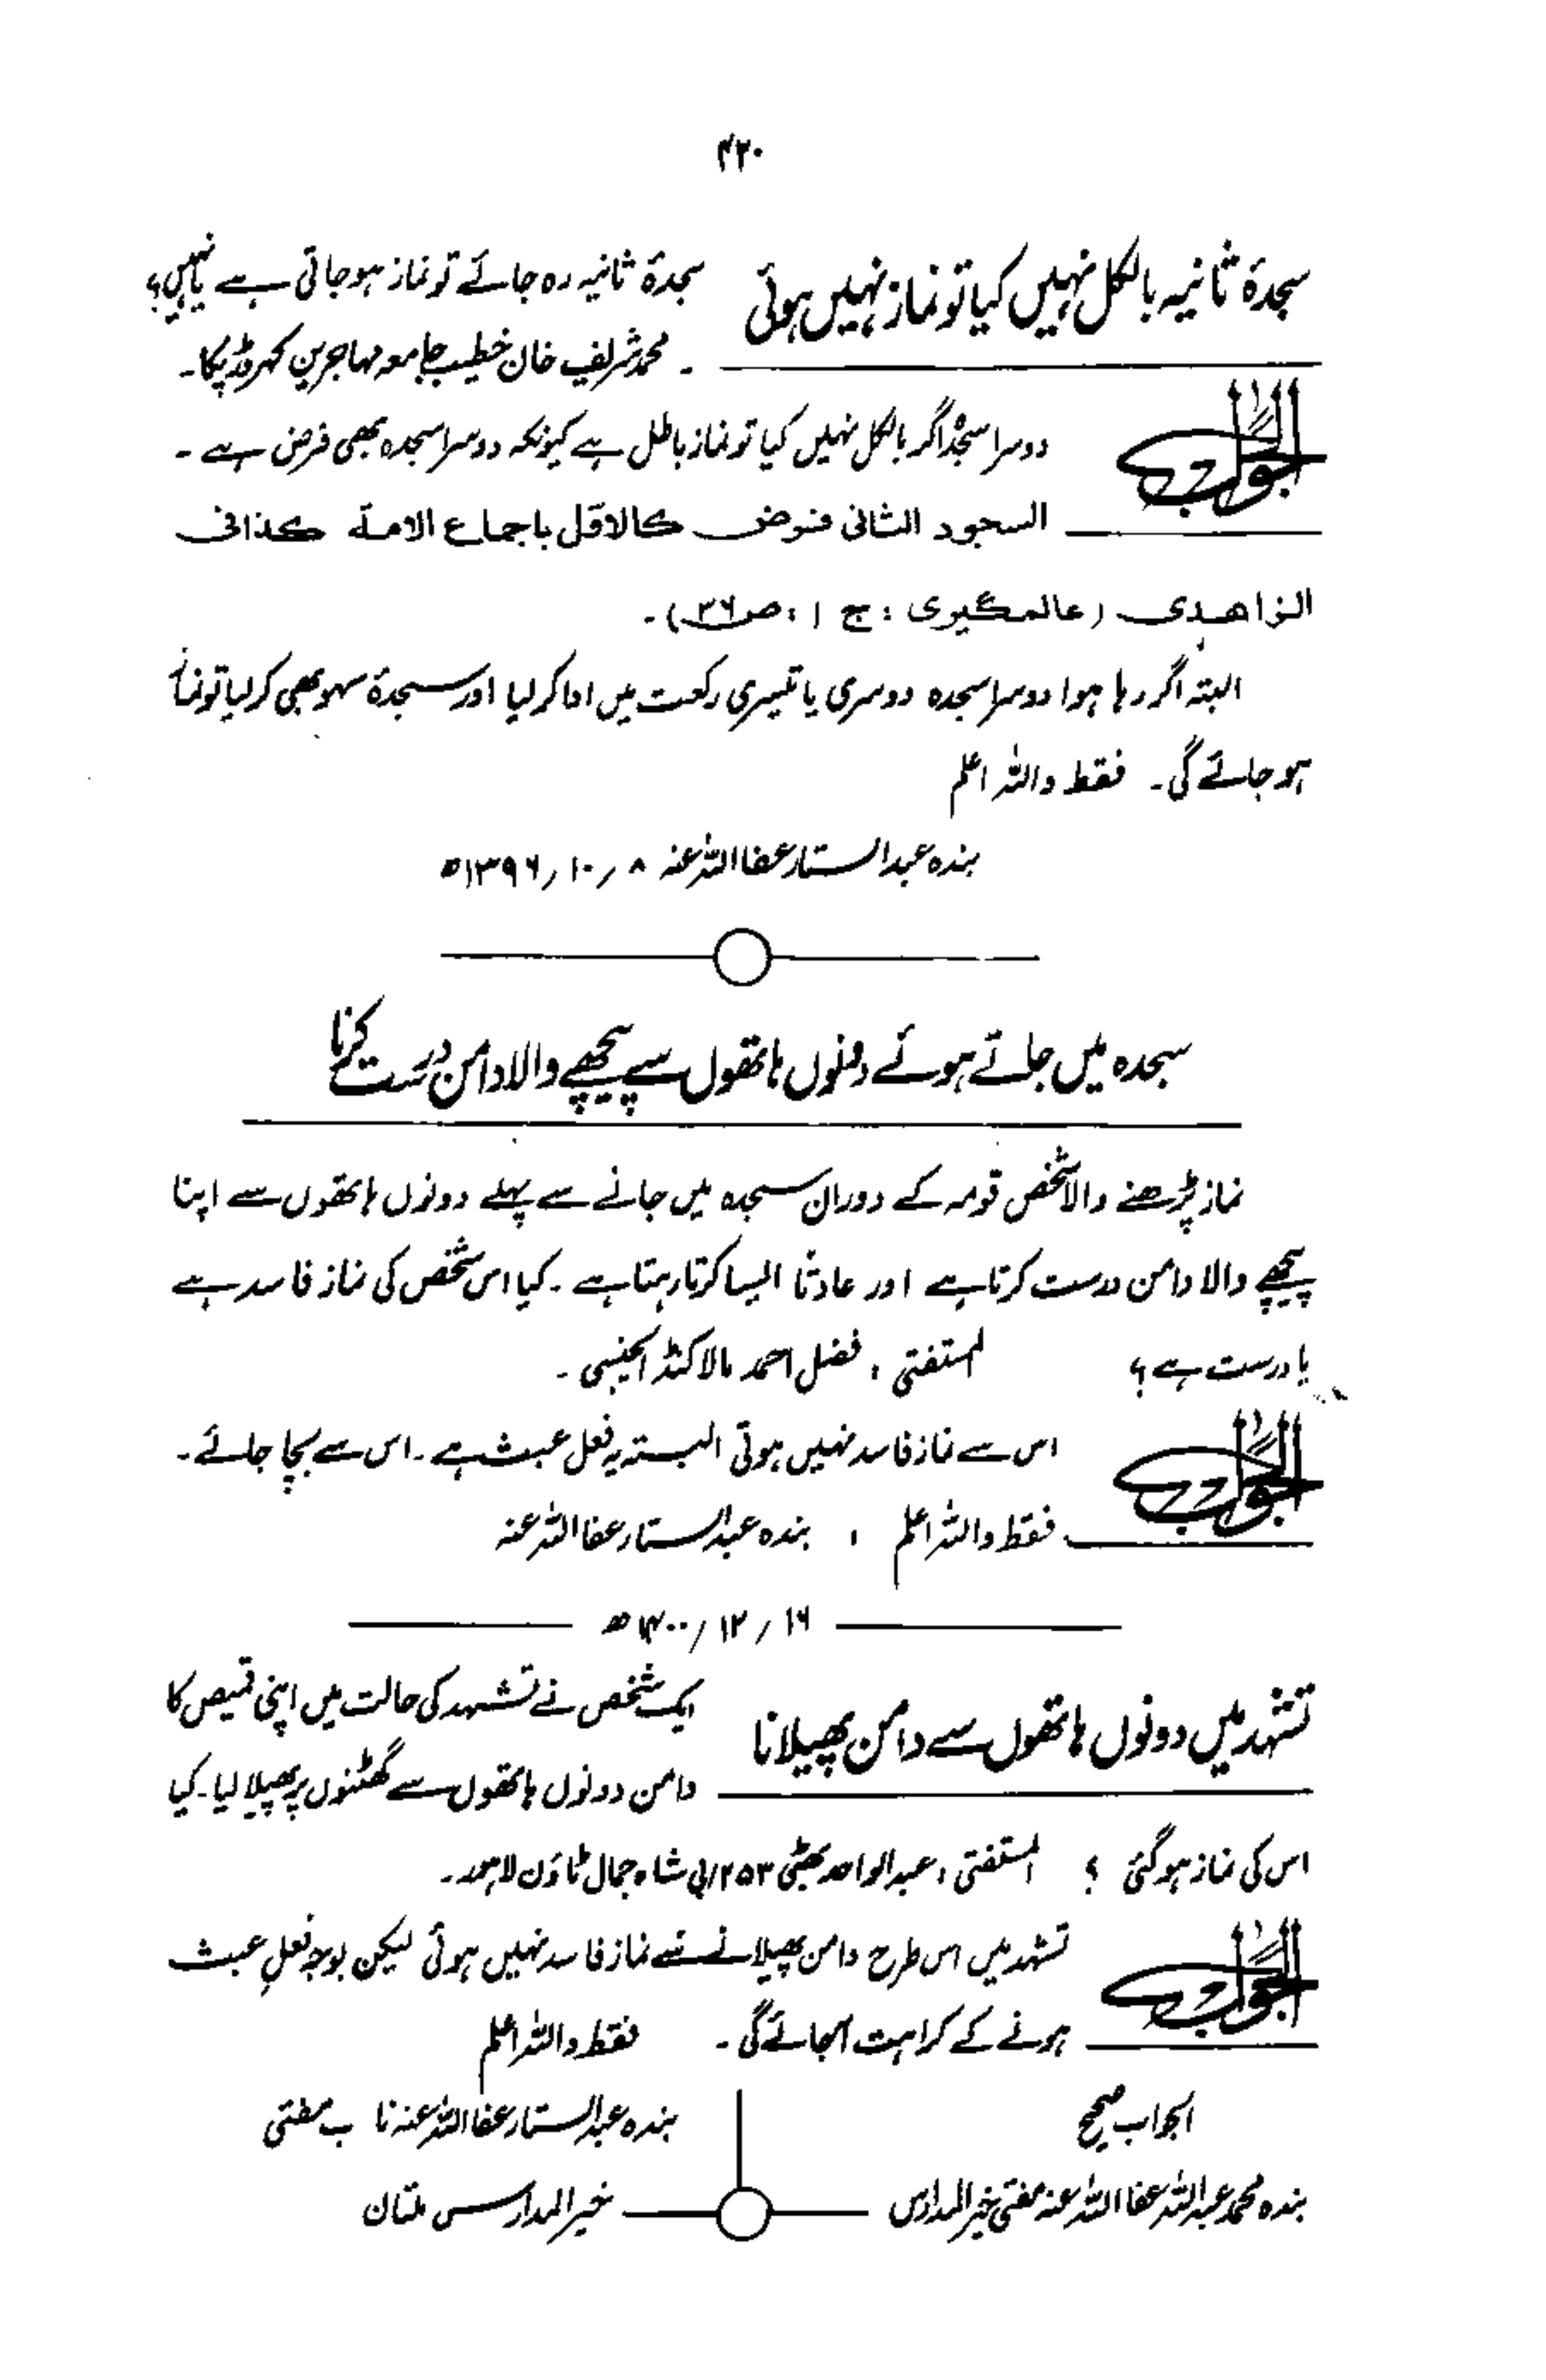 ۴۲۰
سجدۂ ثانیہ بالکل نہیں کیا تو نماز نہیں ہوئی
سجدۂ ثانیہ رہ جائے تو نماز ہوجاتی ہے یا نہیں؟
محمد شریف خان خطیب جامعہ مہاجرین کہروڑ پکا۔
الجواب
دوسرا سجدہ اگر بالکل نہیں کیا تو نماز باطل ہے کیونکہ دوسرا سجدہ بھی فرض ہے ۔
السجود الثانی فرض کالاوّل باجماع الامة کذا فی
الزاهدی (عالمگیری : ج ۱ : ص۳۶)۔
البتہ اگر رہا ہوا دوسرا سجدہ دوسری یا تیسری رکعت میں ادا کرلیا اور سجدۂ سہو بھی کرلیا تو نماز
ہو جائے گی۔ فقط واللہ اعلم
بندہ عبدالستار عفا اللہ عنہ ۸ / ۱۰ / ۱۳۹۶ھ
سجدہ میں جاتے ہوئے دونوں ہاتھوں سے پیچھے والا دامن درست کرنا
نماز پڑھنے والا شخص قومہ کے دوران سجدہ میں جانے سے پہلے دونوں ہاتھوں سے اپنا
پیچھے والا دامن درست کرتا ہے اور عادتاً ایسا کرتا رہتا ہے ۔ کیا اس شخص کی نماز فاسد ہے
یا درست ہے ؟ المستفتی ، فضل احمد مالاکنڈ ایجنسی ۔
الجواب
اس سے نماز فاسد نہیں ہوتی البتہ یہ فعل عبث ہے ۔ اس سے بچا جائے ۔
فقط واللہ اعلم ، بندہ عبدالستار عفا اللہ عنہ
۱۶ / ۱۲ / ۱۴۰۰ھ
تشہد میں دونوں ہاتھوں سے دامن پھیلانا
ایک شخص نے تشہد کی حالت میں اپنی قمیص کا
دامن دونوں ہاتھوں سے گھٹنوں پر پھیلا لیا ۔ کیا
اس کی نماز ہوگئی ؟ المستفتی ، عبدالواحد بھٹی ۲۵۳/بی شاہ جمال ٹاؤن لاہور ۔
الجواب
تشہد میں اس طرح دامن پھیلانے سے نماز فاسد نہیں ہوئی لیکن بوجہ فعلِ عبث
ہونے کے کراہت آجائے گی ۔ فقط واللہ اعلم
الجواب صحیح
بندہ محمد عبداللہ عفا اللہ عنہ مفتی خیر المدارس
بندہ عبدالستار عفا اللہ عنہ نائب مفتی
خیر المدارس ملتان